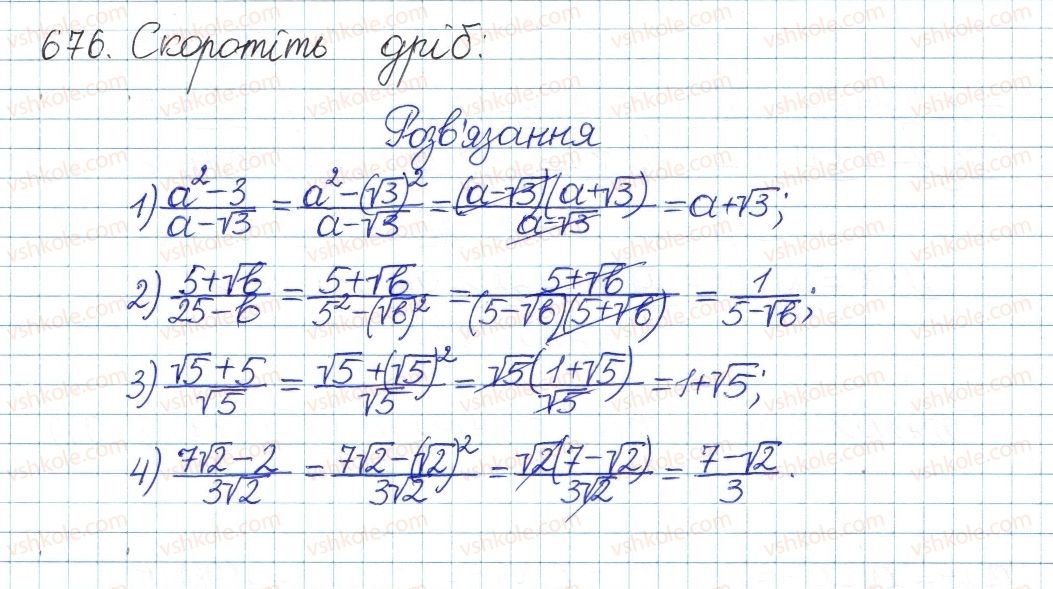 676. Скоротіть дріб:
Розв'язання
1) (a² − 3)/(a − √3) = (a² − (√3)²)/(a − √3) = ((a − √3)(a + √3))/(a − √3) = a + √3;
2) (5 + √b)/(25 − b) = (5 + √b)/(5² − (√b)²) = (5 + √b)/((5 − √b)(5 + √b)) = 1/(5 − √b);
3) (√5 + 5)/√5 = (√5 + (√5)²)/√5 = (√5(1 + √5))/√5 = 1 + √5;
4) (7√2 − 2)/(3√2) = (7√2 − (√2)²)/(3√2) = (√2(7 − √2))/(3√2) = (7 − √2)/3.